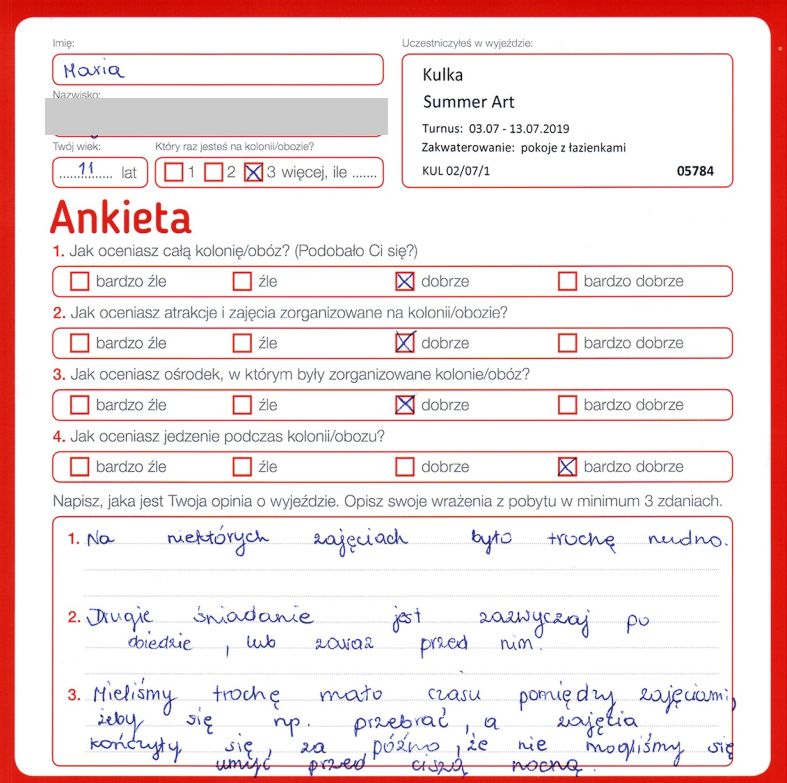 Imię:
Uczestniczyłeś w wyjeździe:
Maria
Kulka
Summer Art
Nazwisko:
Turnus: 03.07 - 13.07.2019
Zakwaterowanie: pokoje z łazienkami
KUL 02/07/1 05784
Twój wiek: Który raz jesteś na kolonii/obozie?
11 lat 1 2 3 więcej, ile .......
Ankieta
1. Jak oceniasz całą kolonię/obóz? (Podobało Ci się?)
bardzo źle źle dobrze bardzo dobrze
2. Jak oceniasz atrakcje i zajęcia zorganizowane na kolonii/obozie?
bardzo źle źle dobrze bardzo dobrze
3. Jak oceniasz ośrodek, w którym były zorganizowane kolonie/obóz?
bardzo źle źle dobrze bardzo dobrze
4. Jak oceniasz jedzenie podczas kolonii/obozu?
bardzo źle źle dobrze bardzo dobrze
Napisz, jaka jest Twoja opinia o wyjeździe. Opisz swoje wrażenia z pobytu w minimum 3 zdaniach.
1. Na niektórych zajęciach było trochę nudno.
2. Drugie śniadanie jest zazwyczaj po
obiedzie, lub zaraz przed nim.
3. Mieliśmy trochę mało czasu pomiędzy zajęciami,
żeby się np. przebrać, a zajęcia
kończyły się, za późno, że nie mogliśmy się
umyć przed ciszą nocną.